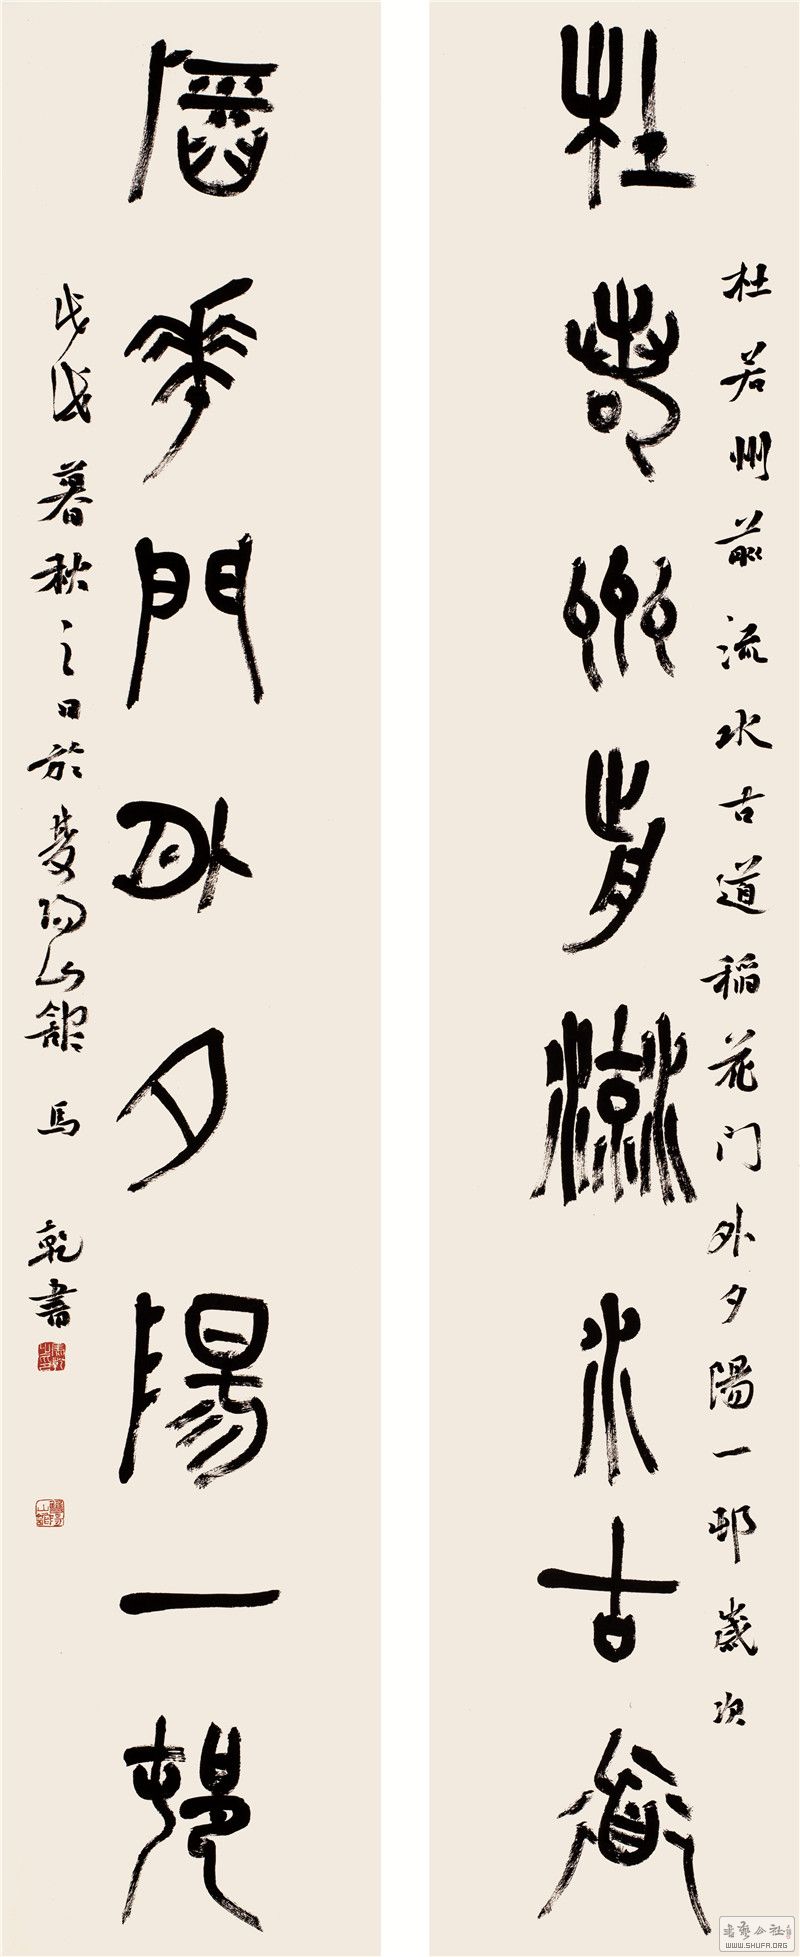 杜若州前流水古道
杜若州前流水古道稻花门外夕陽一邨歲次
稻華門外夕陽一邨
戊戌暮秋之日於雙陽山館 馬乾書
書藝公社
WWW.SHUFA.ORG